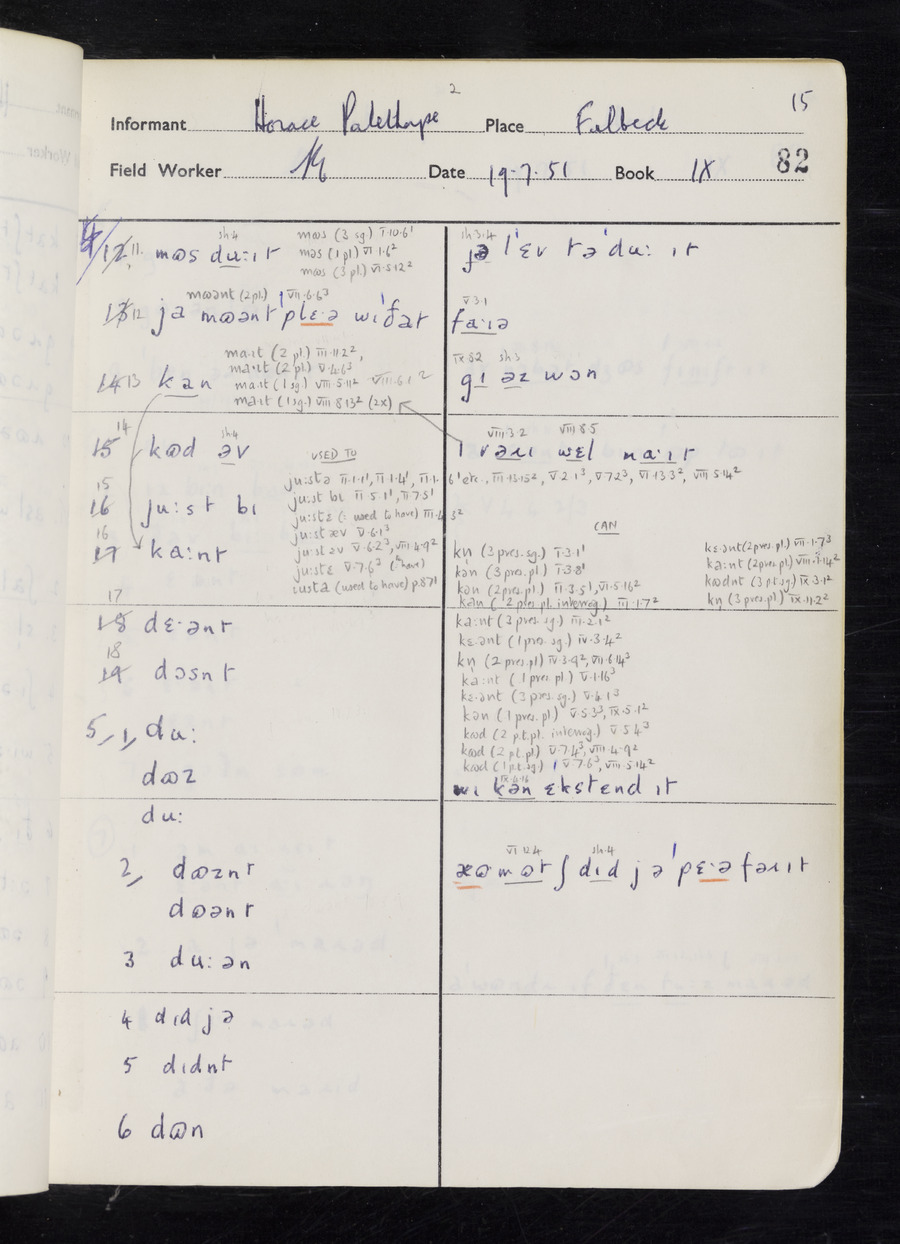 2
15
Informant Horace Palethorpe Place Fulbeck
Field Worker Date 19.7.51 Book IX 82
sh4
12 11. mɷs du:ɪt
mɷs (3 sg) I.10.6¹
mǝs (1 pl) VI.1.6²
mɷs (3 pl.) VI.5.12²
mɷǝnt (2pl.) VII.6.6³
13 12 ja mɷǝnt ˈplɛ·ǝ wɪ ðat
ma:ɪt (2 pl) III.11.2²,
ma·ɪt (2 pl.) V.4.6³
14 13 kan
ma:ɪt (1 sg) VIII.5.11² VIII.6.1²
ma:ɪt (1 sg.) VIII 8 13² (2x)
14
15 kɷd ǝv
sh4
USED TO
ju:stǝ II.1.1¹, II.1.4¹, II.1.6¹ etc., III.13.15², V.2.1³, V.7.2³, VI.13.3², VIII.5.14²
15
16 ju:st bɪ
ju:st bɪ II.5.1¹, II.7.5¹
ju:stɛ (: used to have) III.4.3²
ju:stæv V.6.1³
16
17 ka:nt
ju:stǝv V.6.2³, VIII.4.9²
ju:stɛ V.7.6³ (: have)
ɪusta (used to have) p.87¹
17
18 dɛ·ǝnt
18
19 dɔsnt
5, 1, du:
dɷz
du:
2, dɷznt
dɷǝnt
3 du:ǝn
4 dɪd jǝ
5 dɪdnt
6 dɷn
sh 3.4
jǝ ˈl ɛv tǝ ˈdu: ɪt
V 3.1
fa:ɪǝ
IX 8 2 sh3
gɪ ǝz wɔn
VIII 3.2 VIII 8 5
vaɹɪ wɛl na:ɪt
CAN
kṇ (3 pres. sg.) I.3.1¹
kǝn (3 pres. pl.) I.3.8¹
kǝn (2 pres. pl.) II.3.5¹, VI.5.16²
kan (2 pres. pl. interrog.) III.1.7²
kɛ·ǝnt (2 pres. pl.) VII.1.7³
ka:nt (2 pres. pl) VIII.1.14²
kɷdnt (3 p.t. sg.) IX.3.1²
kṇ (3 pres. pl.) IX.11.2²
ka:nt (3 pres. sg.) III.2.1²
kɛ·ǝnt (1 pres. sg.) IV.3.4²
kṇ (2 pres. pl) IV.3.9², VII.6.14³
ka:nt (1 pres. pl.) V.1.16³
kɛ·ǝnt (3 pres. sg.) V.6.1³
kǝn (1 pres. pl.) V.5.3³, IX.5.1²
kɷd (2 p.t. pl. interrog.) V 5 4³
kɷd (2 p.t. pl) V.7.4³, VIII.4.9²
kɷd (1 p.t. sg) V 7.6³, VIII.5.14²
IX.4.16
wɪ kǝn ɛkstɛnd ɪt
VI 12 4 sh.4
æɷ mɷtʃ dɪd jǝ ˈpɛ·ǝ fǝɹɪt